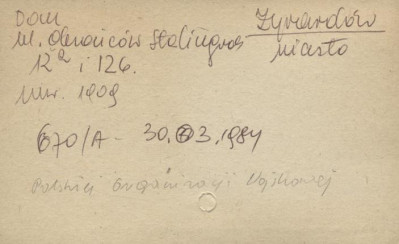 Dom
Żyrardów
ul. Obrońców Stalingradu
miasto
12a i 126.
mur. 1909
670/A - 30.03.1984
Polskiej Organizacji Wojskowej